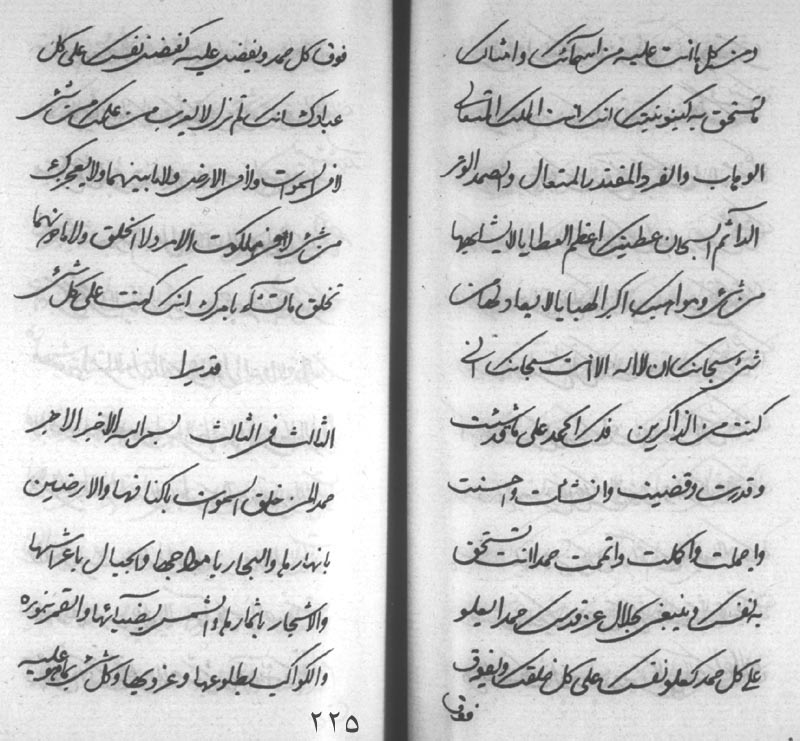 ومن كل ما انت عليه من اسمائك وامثالك
ما تستحق به كينونيتك انك انت الملك المتعالى
الوهاب والفرد المقتدر المتعال والصمد الوتر
الدائم السبحان عطيتك اعظم العطايا لا يشابهها
من شئ ومواهبك اكبر الهبايا لا يعادلها من
شئ سبحانك ان لا اله الا انت سبحانك انى
كنت من الذاكرين فلك الحمد على ما قد شئت
وقدرت وقضيت وانشئت واحسنت
واجملت واكملت واتممت حمدا انت تستحق
به نفسك وينبغى لجلال عز قدسك حمدا يعلو
على كل حمد كعلو نفسك على كل خلقك ويفوق
فوق
فوق كل حمد ويفضل عليه كفضل نفسك على كل
عبادك انك لم تزل لا يعزب من علمك من شئ
لا فى السموات ولا فى الارض ولا ما بينهما ولا يعجزك
من شئ لا فى ملكوت الامر ولا الخلق ولا ما دونهما
تخلق ما تشاء بامرك انك كنت على كل شئ
قديرا
الثالث فى الثالث بسم الله الاخبر الاخبر
حمد لمن خلق السموات باكنافها والارضين
بانهارها والبحار بامواجها والجبال باعراشها
والاشجار باثمارها والشمس بضيائها والقمر بنوره
والكواكب بطلوعها وغروبها وكل شئ بما هو عليه
٢٢٥